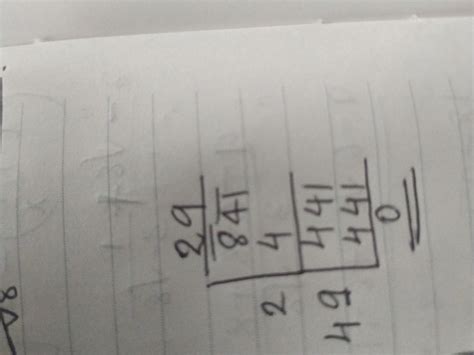 29
2 841
4
49 441
441
0